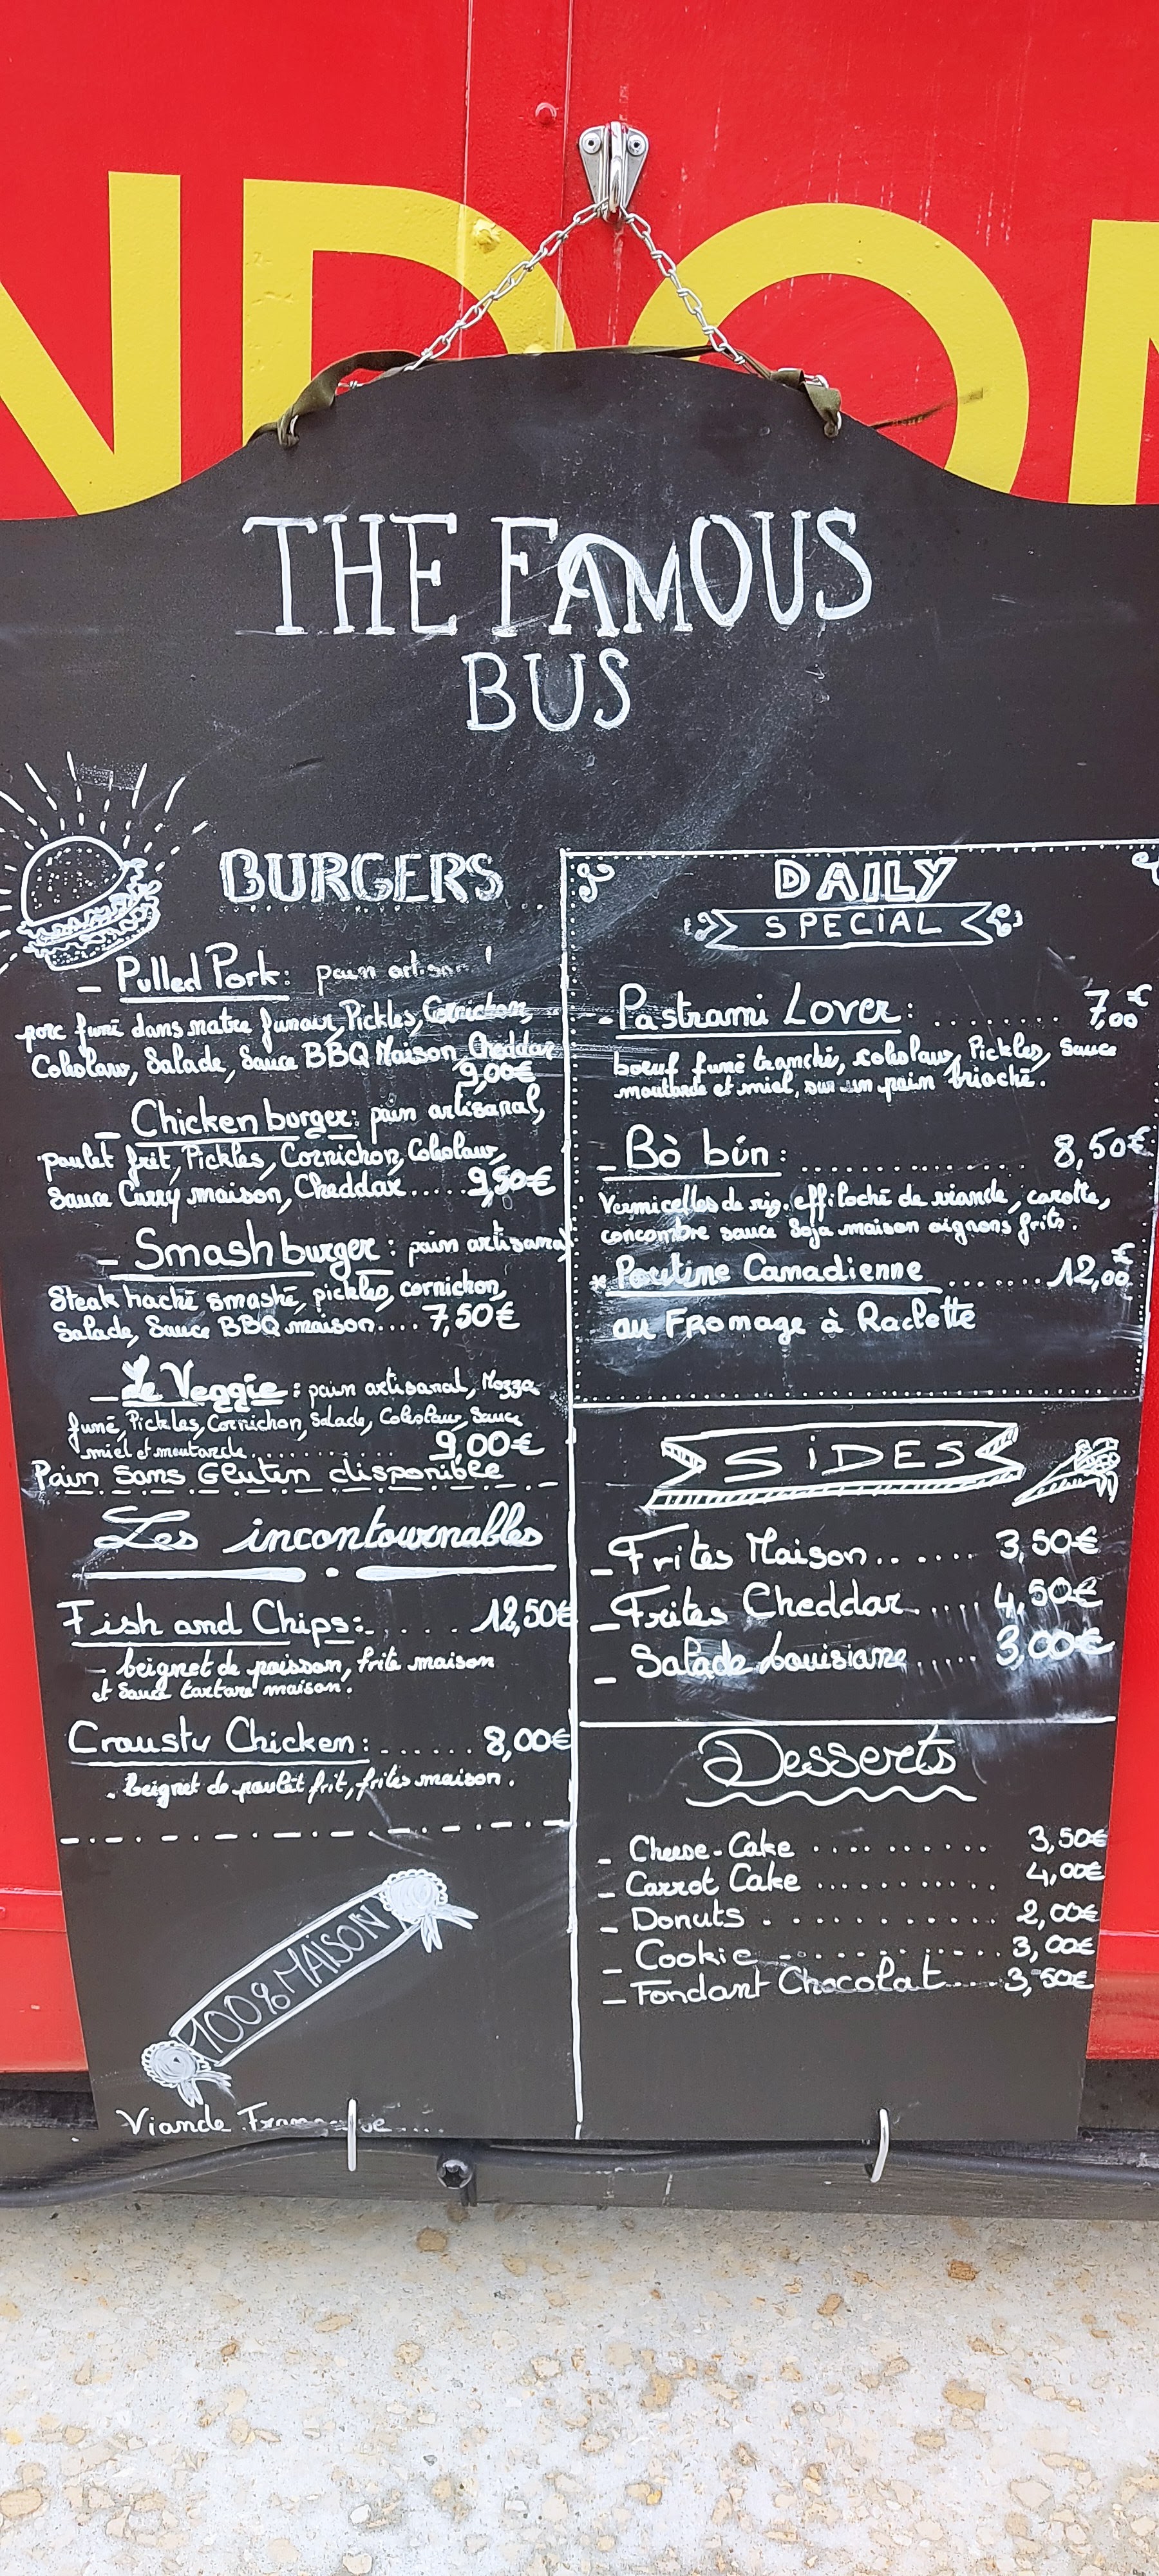 NDON
THE FAMOUS
BUS
BURGERS
_ Pulled Pork: pain artisan
porc fumé dans notre fumoir, Pickles, Cornichon,
Coleslaw, Salade, Sauce BBQ Maison, Cheddar
9,00€
_ Chicken burger: pain artisanal,
poulet frit, Pickles, Cornichon, Coleslaw,
Sauce Curry maison, Cheddar..... 9,50€
_ Smash burger : pain artisanal
Steak haché smashé, pickles, cornichon,
Salade, Sauce BBQ maison.... 7,50€
_ Le Veggie : pain artisanal, Mozza
fumé, Pickles, Cornichon, Salade, Coleslaw, Sauce
miel et moutarde............ 9,00€
Pain Sans Gluten disponible
Les incontournables
Fish and Chips: ..... 12,50€
- beignet de poisson, frite maison
et Sauce tartare maison.
Crousty Chicken: ...... 8,00€
. beignet de poulet frit, frites maison.
100% MAISON
Viande
DAILY
SPECIAL
- Pastrami Lover: ........ 7,00€
boeuf fumé tranché, coleslaw, Pickles, Sauce
moutarde et miel, sur un pain brioché.
_ Bò bún : .................. 8,50€
Vermicelles de riz. effiloché de viande, carotte,
concombre sauce Soja maison oignons frits.
* Poutine Canadienne ....... 12,00€
au Fromage à Raclette
SiDES
_ Frites Maison....... 3,50€
_ Frites Cheddar..... 4,50€
_ Salade Louisiane..... 3,00€
Desserts
_ Cheese-Cake ........... 3,50€
_ Carrot Cake ........... 4,00€
_ Donuts ............. 2,00€
_ Cookie ............. 3,00€
_ Fondant Chocolat..... 3,50€